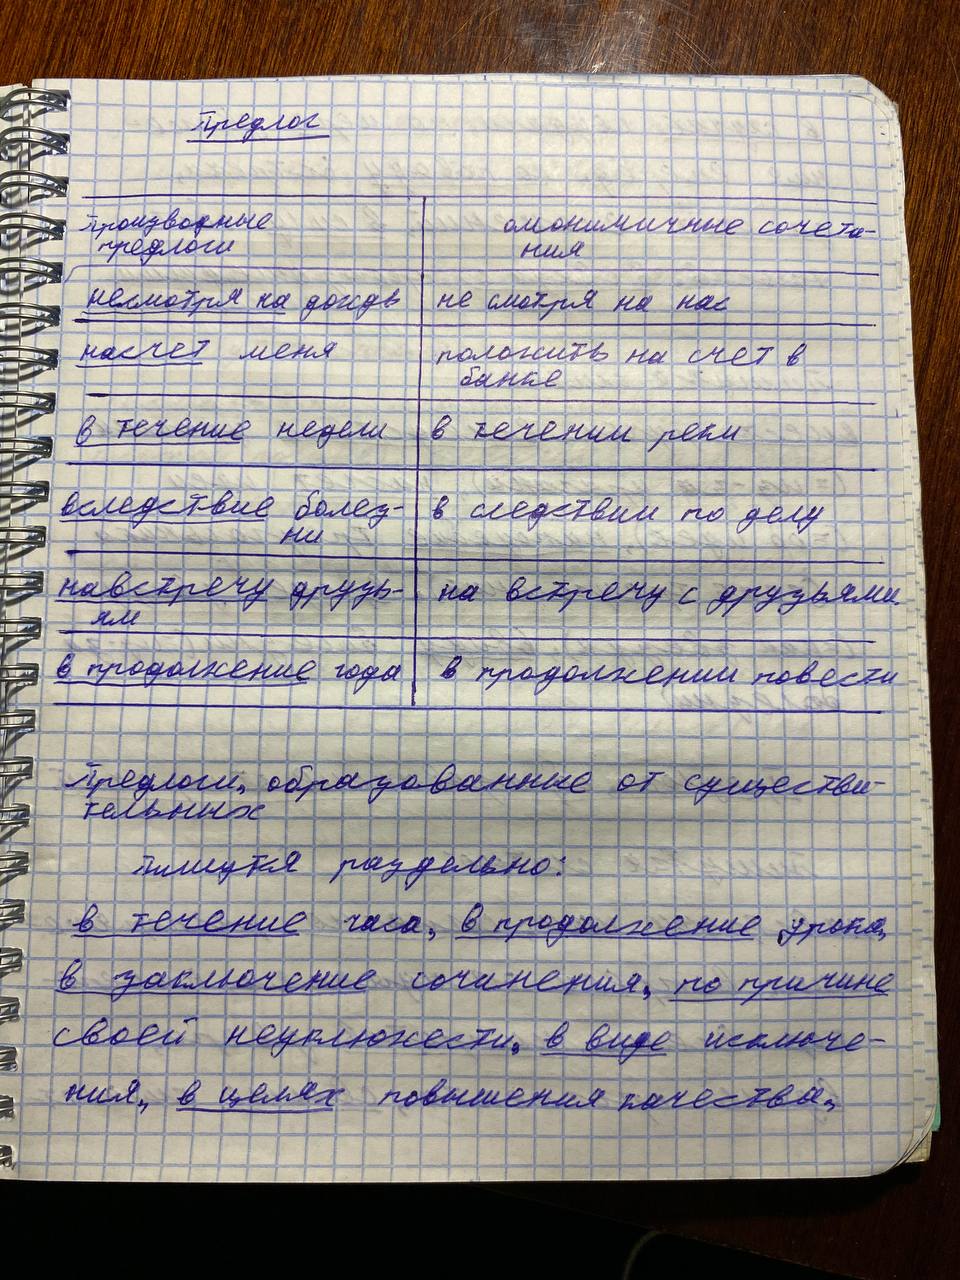 Предлог
Производные предлоги
омонимичные сочета-
ния
несмотря на дождь
не смотря на нас
насчет меня
положить на счет в
банке
в течение недели
в течении реки
вследствие болез-
ни
в следствии по делу
навстречу друзь-
ям
на встречу с друзьями
в продолжение года
в продолжении повести
Предлоги, образованные от существи-
тельных
пишутся раздельно:
в течение часа, в продолжение урока,
в заключение сочинения, по причине
своей неуклюжести, в виде исключе-
ния, в целях повышения качества,